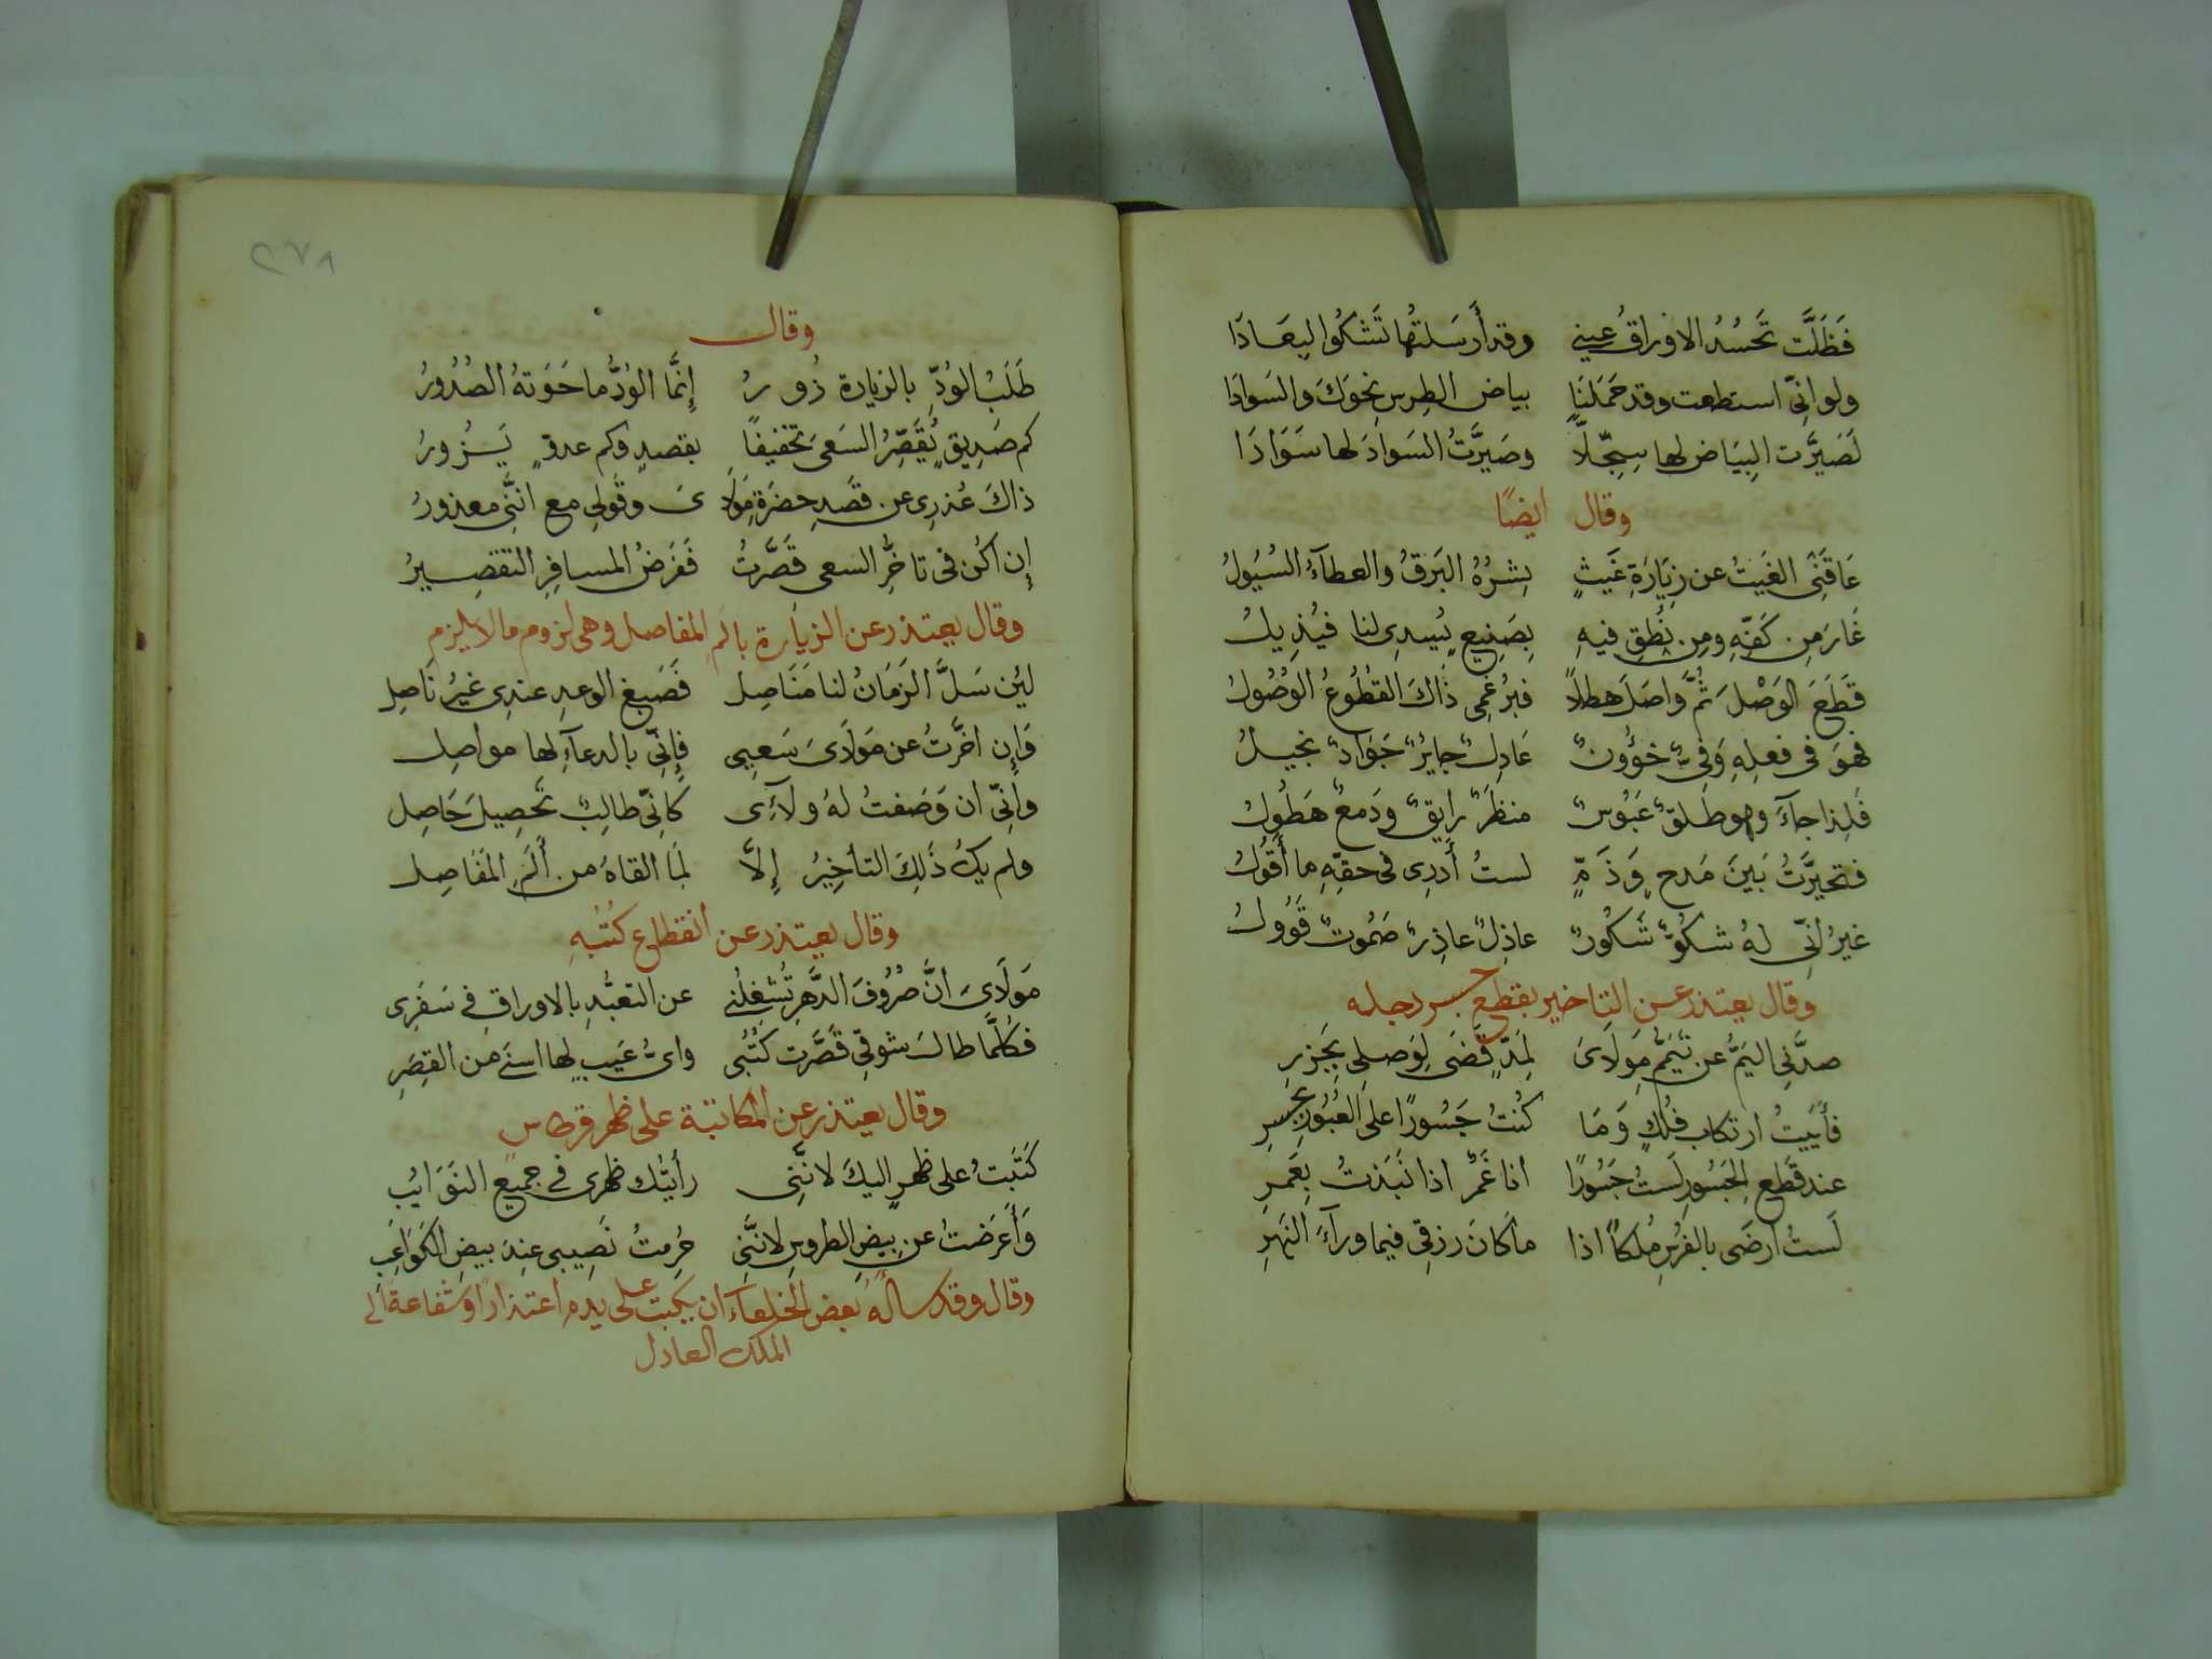 فَظَلَّت تَحسُدُ الاوراقُ عيني وقد أَرسَلتُها تَشكُوا البِعَادَا
ولو انّي استطعت وقد حَمَلنَا بياض الطِرسِ نحوَكَ والسَوادَا
لَصَيَّرت البَيَاض لها سِجِلّاً وصَيَّرتُ السَوادَ لها سَوَادَا
وقال ايضًا
عَاقَنِي الغَيثُ عن زِيَارَةِ غَيثٍ بِشرُهُ البَرقُ والعطآءُ السُيُولُ
غَارَ مِن كَفِّهِ ومِن نُطقِ فيهِ بِصَنِيعٍ يُسدِى لنا فيُذِيلُ
قَطَعَ الوَصْلَ ثُمَّ واصَلَ هطلاً فبرُغمِى ذَاكَ القطُوعُ الوُصُولُ
فهوَ في فعلِهِ وَفيٌّ خؤُونٌ عَادِلٌ جايرٌ جَوَادٌ بخيلُ
فَلِذا جآءَ وهو طَلقٌ عَبُوسٌ منظَرٌ رايقٌ ودَمعٌ هَطُولُ
فتحيَّرتُ بَينَ مَدحٍ وَذَمٍّ لستُ أَدرِى فى حقِّهِ ما أَقُولُ
غيرُ انّي لهُ شكُوٌّ شَكُورٌ عاذِلٌ عاذِرٌ صَمُوتٌ قَوُولُ
وقال يعتذر عن التاخير بقطع جسر دجله
صدَّني اليَمُّ عن تَيَمُّمِ مَولَاىَ لِمَدٍّ قَضَى لِوَصلِى بِجَزرِ
فأَبَيتُ ارتكاب فُلكٍ وَمَا كُنتُ جَسُورًا على العُبُورِ بجسرِ
عند قَطعِ الجسُورِ لَستُ جَسُورًا انا غَمرٌ اذا نَبَذتُ بِغَمرِ
لَستُ ارضَى بالفُرسِ مُلكاً اذا ما كانَ رزقي فيما ورآءَ النَهرِ
٢٧٨
وقال
طَلَبُ الوُدِّ بالزيارة زُورُ إِنَّما الوُدُّ ما حَوَتهُ الصُدُورُ
كم صَدِيقٍ يُقَصِّرُ السَعىَ تخفيفًا بقصدٍ وكم عدوٍّ يَزُورُ
ذاكَ عُذرِى عن قَصدِ حضرَةِ مَولَاىَ وقَولِي مع انَّنِي معذورُ
إِن اكُن في تاخُّرِ السعى قَصَّرتُ فَفَرضُ المسافِرِ التقصِيرُ
وقال يعتذر عن الزيارة بالم المفاصل وهى لزوم ما لا يلزم
لئِن سَلَّ الزَمَانُ لنا مَنَاصِل فَصَبغ الوعدِ عندِى غيرُ نَاصِل
وَإِن اخَّرتُ عن مَولَاىَ سَعيِى فإِنِّي بالدعآءِ لها مواصِل
وإِنّى ان وَصَفتُ لهُ ولآءِى كانِّي طالِبٌ تحصِيلَ حَاصِل
ولم يكُ ذَلِكَ التأخِيرُ إِلاَّ لِمَا القاهُ من أَلَمِ المَفَاصِل
وقال يعتذر عن انقطاع كُتُبهِ
مَولَاىَ انَّ صُرُوفَ الدَّهرِ تُشغِلُني عن التعبُّدِ بالاوراقِ في سَفَرِى
فكُلَّما طالَ شوقي قَصَّرت كُتُبى واىُّ عَيبٍ لها اسنَى من القِصَرِ
وقال يعتذر عن المكاتبة على ظهر قرطاس
كَتَبتُ على ظهرٍ اليكَ لانَّنِي رأيتُك ظهرى في جميع النَوَايبِ
وَأَعرَضتُ عن بِيضِ الطروسِ لانَّنِي حُرِمتُ نَصِيبى عِندَ بيضِ الكَوَاعِبِ
وقال وقد سأله بعض الخلعآء ان يكتب على يده اعتذارًا وشفاعة الى
الملك العادل